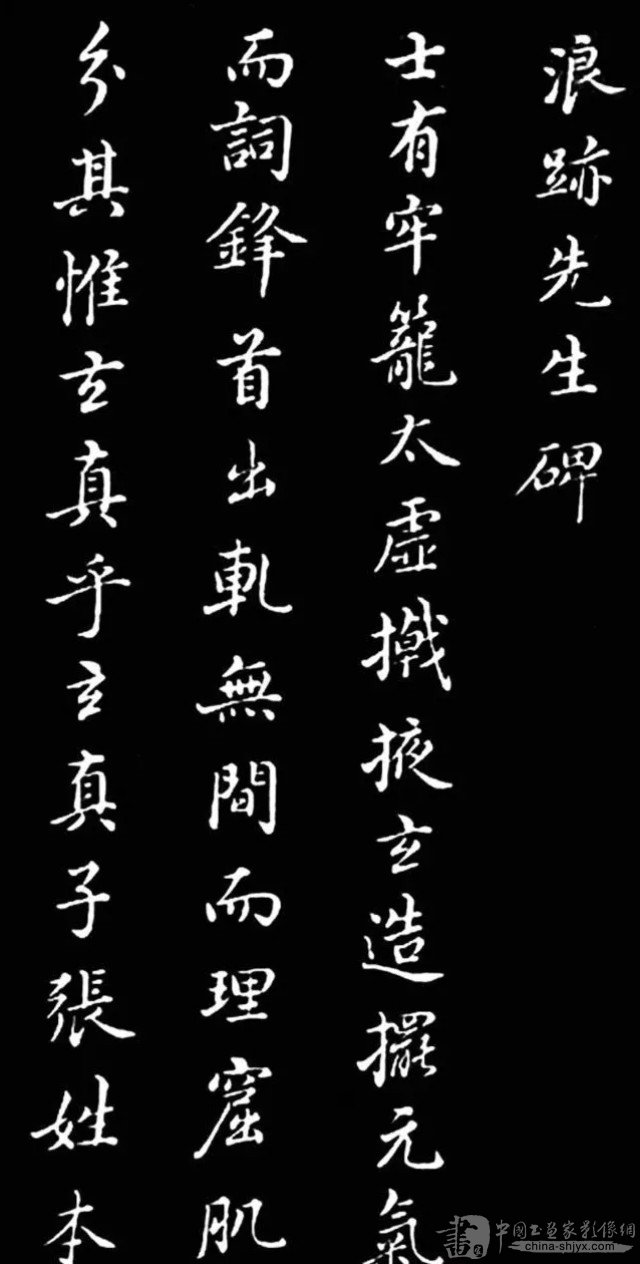 浪跡先生碑
士有牢籠太虛撠掖玄造擺元氣
而詞鋒首出軋無間而理窟肌
分其惟玄真乎玄真子張姓本
書
中國书画家影像網
china-shjyx.com